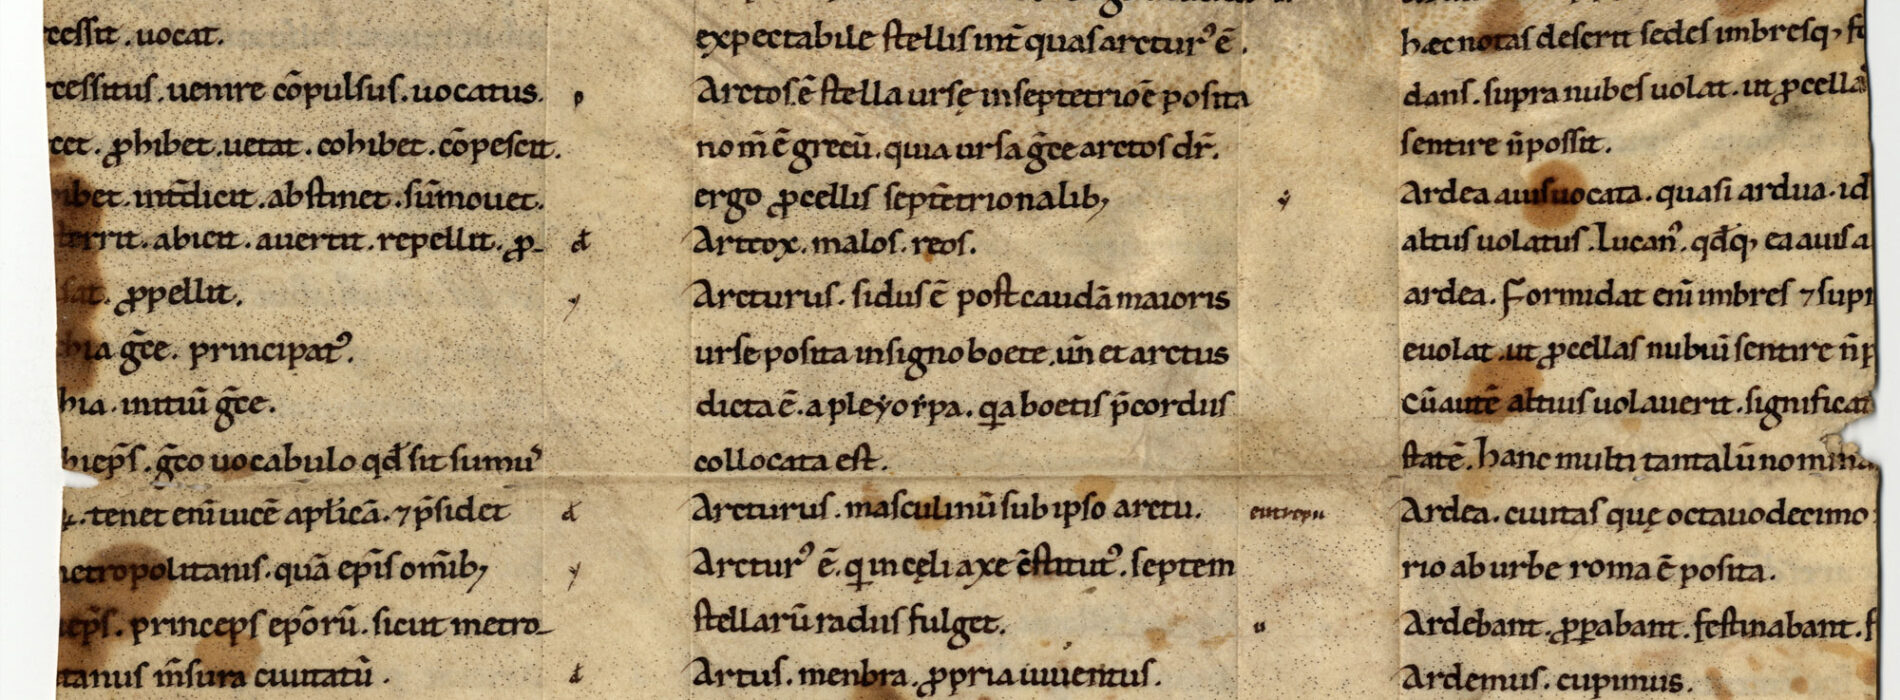 cessit . uocat.
cessitus . uenire cōpulsus . uocatus.
cet . ꝓhibet . uetat . cohibet . cōpescit.
ibet . int̄dicit . abstinet . sūmouet.
territ . abicit . auertit . repellit . ꝓ-
sat . ꝓpellit.
hia ḡce . principatꝰ.
hia . initiū ḡce.
hiep̄s . ḡco uocabulo qđ sit sumꝰ
tenet eni̅ uicē apl̄icā . ⁊ p̄sidet
metropolitanis . quā ep̄is om̄ibꝫ
ep̄s . princeps ep̄orū . sicut metro-
tanus m̄sura ciuitatū .
expectabile stellis int̄ quas arcturꝰ ē .
Arctos . ē stella ursę in septētriōe posita
nom̄ ē grecū . quia ursa ḡce arctos dr̄.
ergo ꝓcellis septētrionalibꝫ
Arteox . malos . reos.
Arcturus . sidus ē post caudā maioris
urse posita in signo boete . un̄ et arctus
dicta ē . a pleyorpa . qa boetis p̄cordiis
collocata est.
Arcturus . masculinū sub ipso arctu.
Arcturꝰ ē . q in cęli axe c̄stitutꝰ . septem
stellarū radiis fulget.
Artus . menbra . ꝓpria iuuentus.
hæc notas deserit sedes imbresqꝫ
dans . supra nubes uolat . ut ꝓcella
sentire n̄ possit.
Ardea auis uocata . quasi ardua . id
altus uolatus . Lucan̄ . qđqꝫ ea auis a
ardea . Formidat eni̅ imbres ⁊ sup
euolat . ut ꝓcellas nubiū sentire n̄
cū autē altius uolauerit . significat
statē . hanc multi tantalū nomina
Ardea . ciuitas quę octauodecimo
rio ab urbe roma ē posita.
Ardebant . ꝓꝑabant . festinabant .
Ardemus . cupimus.